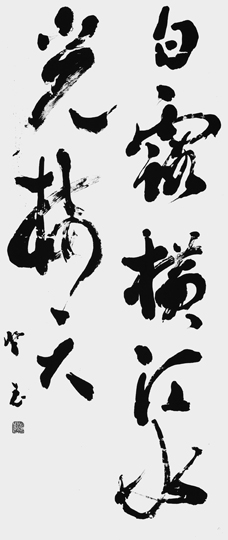 白露横江水
光接天